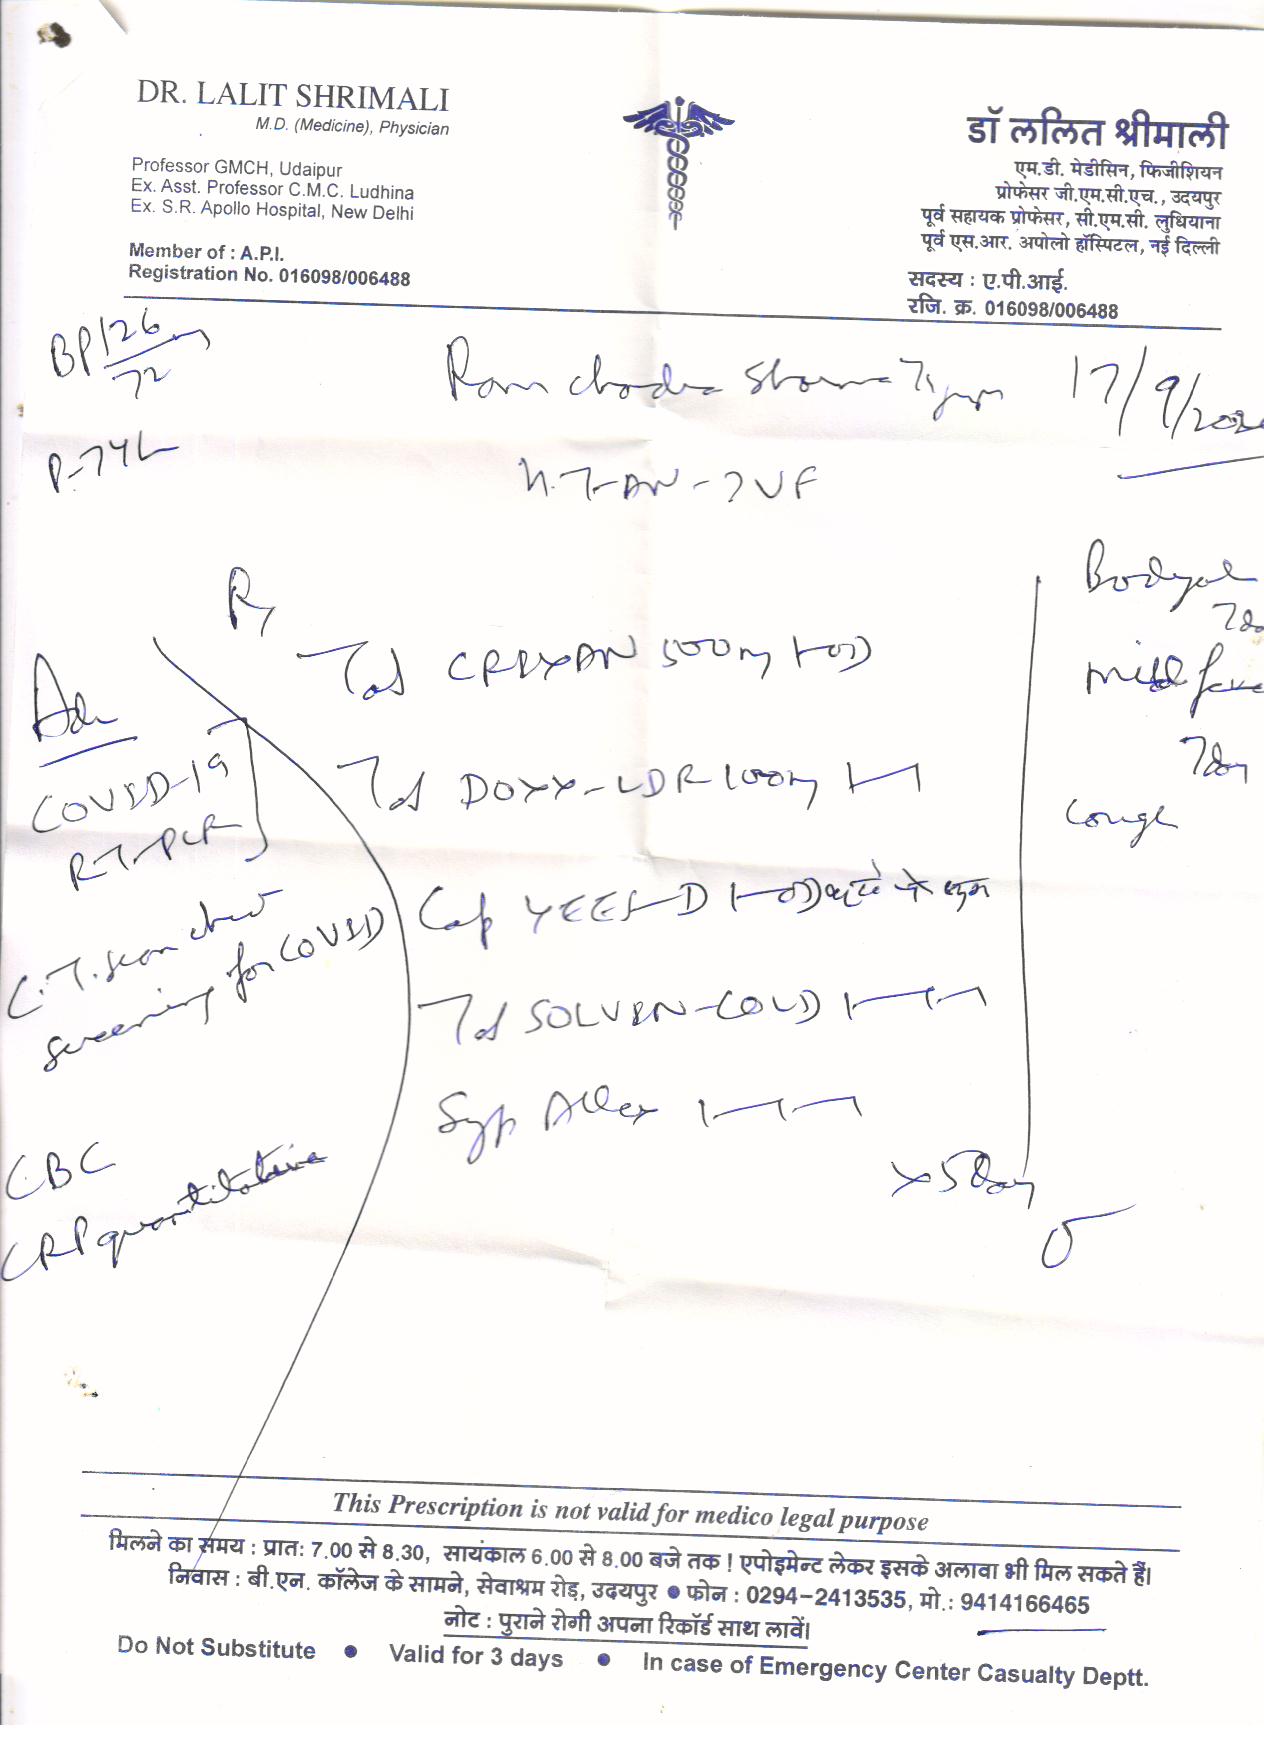 DR. LALIT SHRIMALI
M.D. (Medicine), Physician
Professor GMCH, Udaipur
Ex. Asst. Professor C.M.C. Ludhina
Ex. S.R. Apollo Hospital, New Delhi
Member of : A.P.I.
Registration No. 016098/006488
डॉ ललित श्रीमाली
एम.डी. मेडीसिन, फिजीशियन
प्रोफेसर जी.एम.सी.एच., उदयपुर
पूर्व सहायक प्रोफेसर, सी.एम.सी. लुधियाना
पूर्व एस.आर. अपोलो हॉस्पिटल, नई दिल्ली
सदस्य : ए.पी.आई.
रजि. क्र. 016098/006488
BP 126
72
Ram chandra Sharma 17/9/2020
P-74
Rx
Adv
COVID-19
RT-PCR
C.T. scan chest
screening for COVID
CBC
CRP quantitative
Tab 500mg 1-OD
Tab DOXY-LDR 100mg
Cap D 1-OD
Tab SOLVIN-COLD
Syp Alex
x 5 day
mild fever
7 day
Cough
This Prescription is not valid for medico legal purpose
मिलने का समय : प्रात: 7.00 से 8.30, सायंकाल 6.00 से 8.00 बजे तक ! एपोइमेन्ट लेकर इसके अलावा भी मिल सकते हैं।
निवास : बी.एन. कॉलेज के सामने, सेवाश्रम रोड़, उदयपुर ● फोन : 0294-2413535, मो.: 9414166465
नोट : पुराने रोगी अपना रिकॉर्ड साथ लावें।
Do Not Substitute ● Valid for 3 days ● In case of Emergency Center Casualty Deptt.